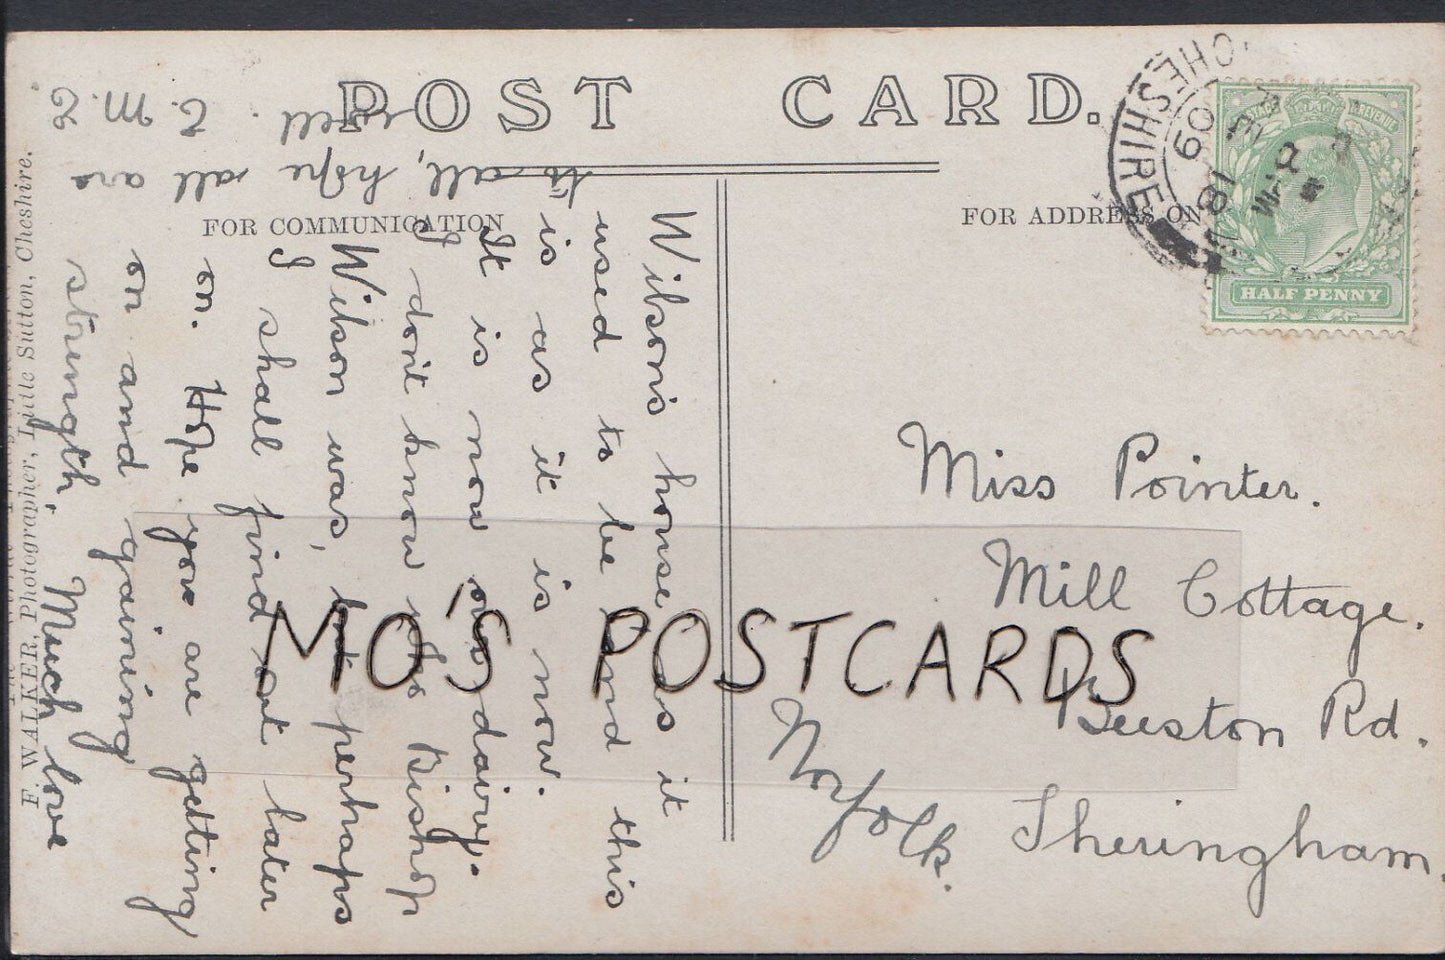 POST CARD.
FOR COMMUNICATION
FOR ADDRESS ON
CHESHIRE
18
09
HALF PENNY
Wilson's house as it
used to be and this
is as it is now.
It is now our dairy.
I don't know who Bishop
Wilson was, but perhaps
I shall find out later
on. Hope you are getting
on and gaining
strength. Much love
to all, hope all are
well. E. M. E
Miss Pointer.
Mill Cottage.
Beeston Rd.
Sheringham.
Norfolk.
F. WALKER, Photographer, Little Sutton, Cheshire.
MO'S POSTCARDS